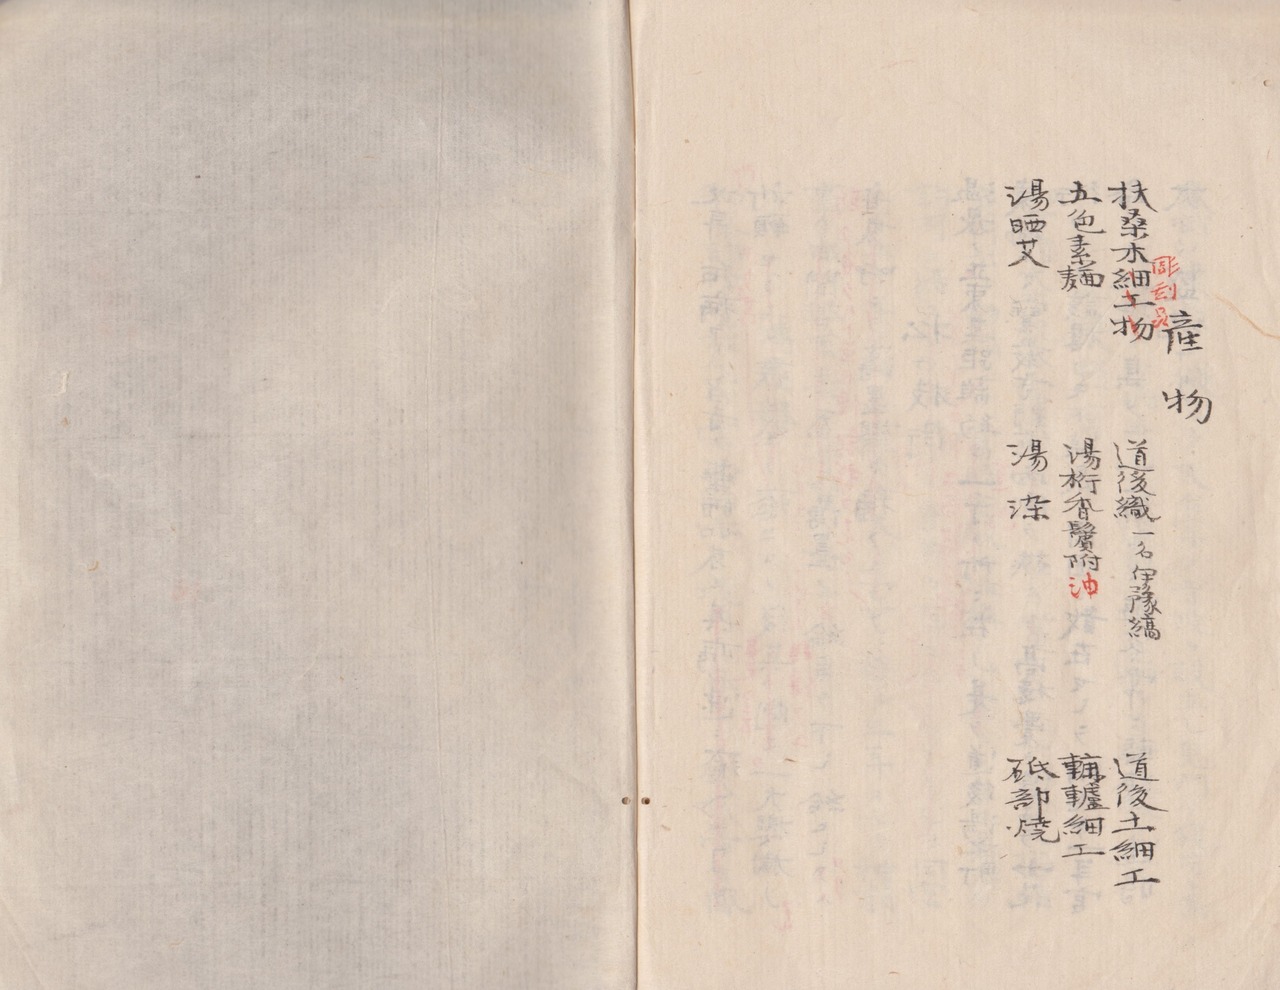 産物
扶桑木細工物 道後織 一名伊豫縞 道後土細工
彫刻品
五色素麺 湯桁香鬢附油 轆轤細工
湯晒艾 湯染 砥部焼